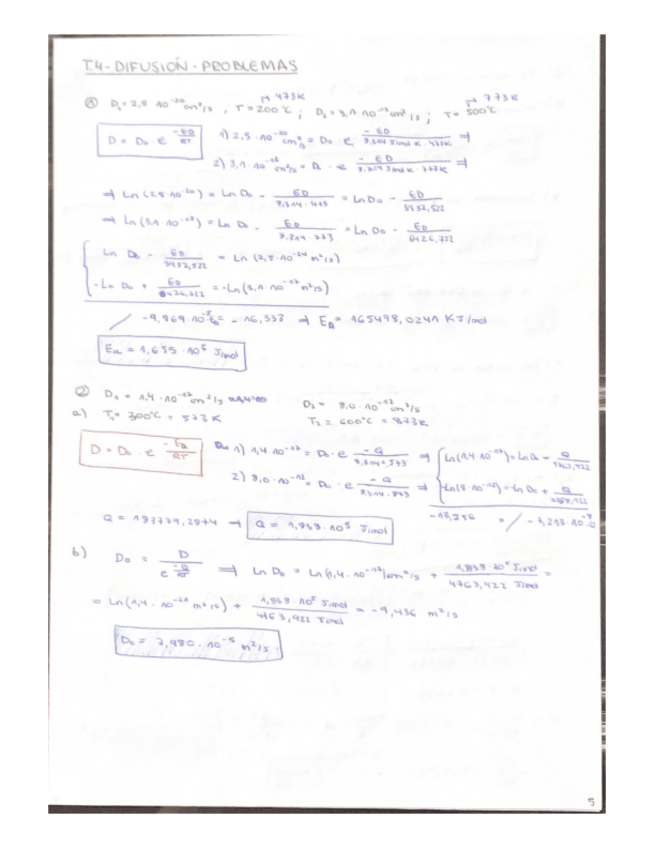 T.4 - DIFUSIÓN - PROBLEMAS
① D₁ = 2,5 · 10⁻²⁰ cm²/s , T = 200°C ↦ 473K ; D₂ = 3,1 · 10⁻¹² cm²/s ; T = 500°C ↦ 773K
D = D₀ · e^(-ED/RT) 1) 2,5 · 10⁻²⁰ cm²/s = D₀ · e - ED / 8,314 J/mol K · 473K ⇒
2) 3,1 · 10⁻¹² cm²/s = D · e - ED / 8,314 J/mol K · 773K ⇒
⇒ Ln (2,5 · 10⁻²⁰) = Ln D₀ - ED / 8,314 · 473 = Ln D₀ - ED / 3932,522
⇒ Ln (3,1 · 10⁻¹²) = Ln D₀ - ED / 8,314 · 773 = Ln D₀ - ED / 6426,722
Ln D₀ - ED / 3932,522 = Ln (2,5 · 10⁻²⁴ m²/s)
-Ln D₀ + ED / 6426,722 = -Ln (3,1 · 10 m²/s)
-9,869 · 10⁻⁵ = -16,333 ⇒ = 165498,0241 KJ/mol
Ea = 1,655 · 10⁵ J/mol
② D₁ = 1,4 · 10⁻¹⁷ cm²/s D₂ = 8,0 · 10⁻¹² cm²/s
a) T₁ = 300°C = 573K T₂ = 600°C = 873K
D = D₀ · e / RT 1) 1,4 · 10⁻¹⁷ = D₀ · e - Q / 8,314 · 573 ⇒ Ln (1,4 · 10⁻¹⁷) = Ln D₀ - Q
2) 8,0 · 10⁻¹² = D₀ · e - Q / 8,314 · 873 ⇒ -Ln (8 · 10⁻¹²) = -Ln D₀ + Q
-13,256 = -3,213 · 10
Q = 1 ⇒ Q = 1,838 · 10⁵ J/mol
b) D₀ = D / e^(-Q/RT) ⇒ Ln D₀ = Ln (1,4 · 10⁻¹⁷) cm²/s + 1,838 · 10⁵ J/mol / 4763,922 J/mol =
= Ln (1,4 · 10⁻²¹ m²/s) + 1,838 · 10⁵ J/mol / 4763,922 J/mol = -9,436 m²/s
D₀ = 7,980 · 10⁻⁵ m²/s.
5